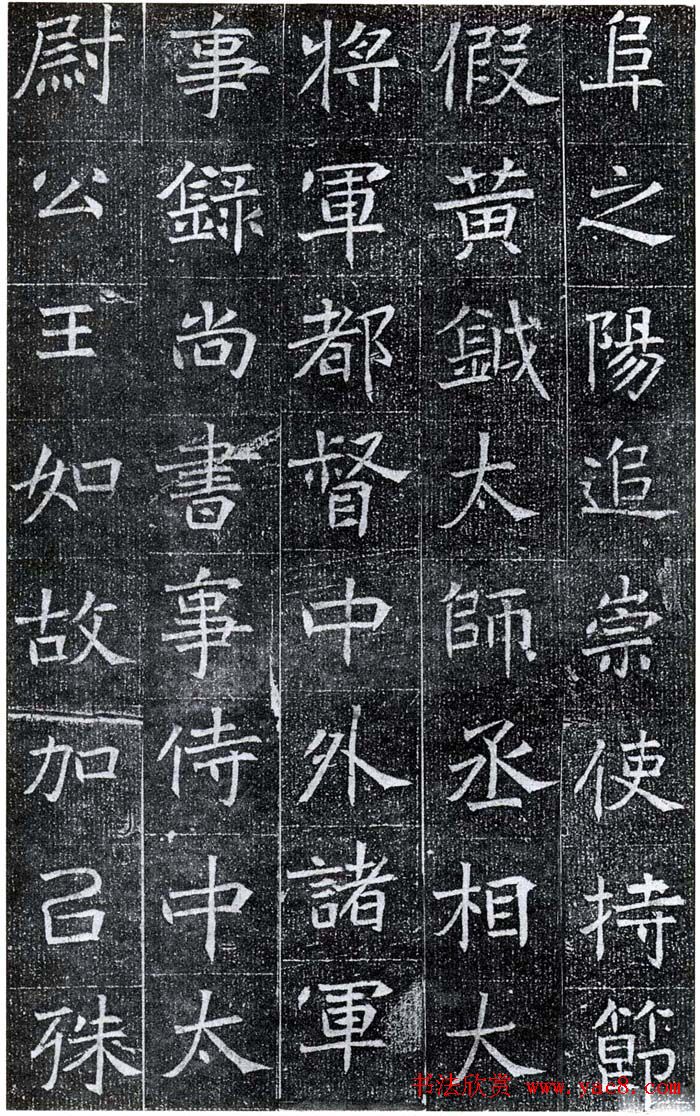 阜之陽追崇使持節
假黃鉞太師丞相大
將軍都督中外諸軍
事錄尚書事侍中太
尉公王如故加召殊
书法欣赏 www.yac8.com